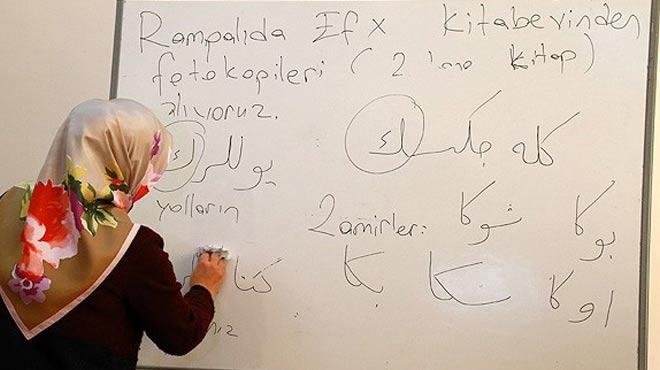 Rampalıda Efx kitabevinden
fotokopileri (2 tane kitap)
alıyoruz.
يوللرڭ كله جكسڭ
yolların 2 amirler: شوكا بوكا
كتا بكا سكا اوكا